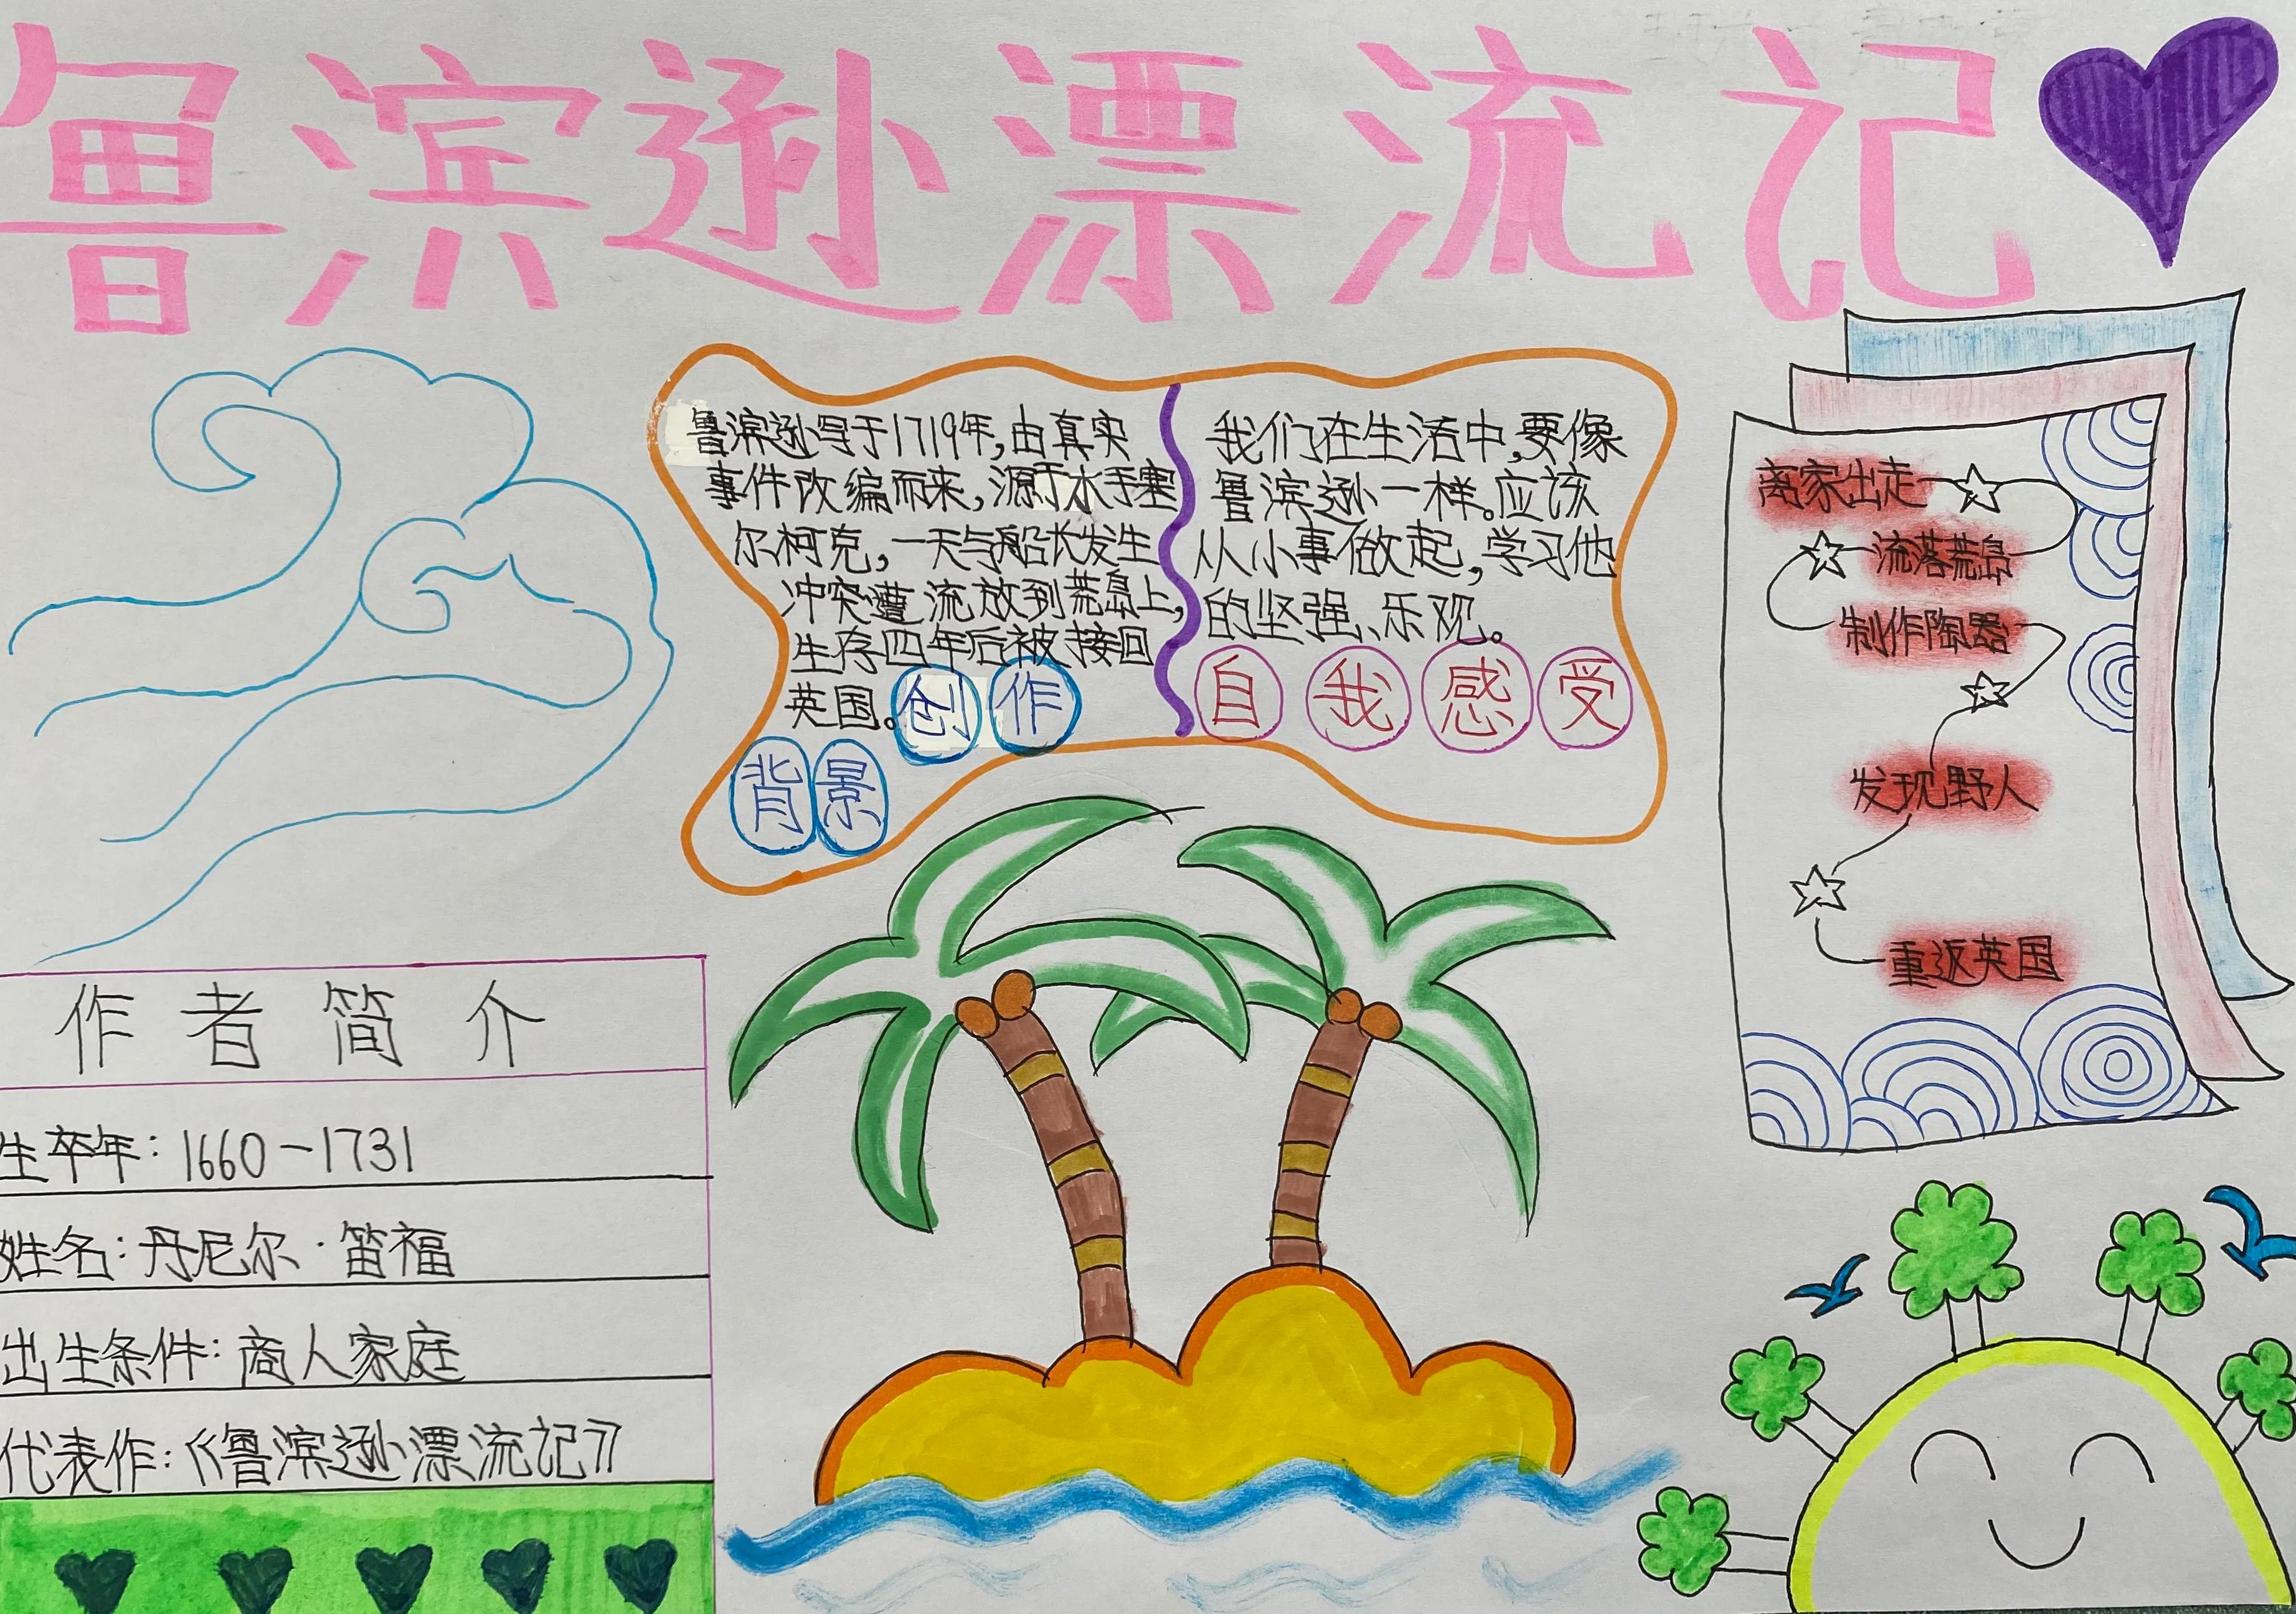 鲁滨逊漂流记
鲁滨逊写于1719年,由真实
事件改编而来,源于水手塞
尔柯克,一天与船长发生
冲突遭流放到荒岛上,
生存四年后被接回
英国。
创作
背景
我们在生活中,要像
鲁滨逊一样。应该
从小事做起,学习他
的坚强、乐观。
自我感受
离家出走
流落荒岛
制作陶器
发现野人
重返英国
作者简介
生卒年:1660-1731
姓名:丹尼尔·笛福
出生条件:商人家庭
代表作:《鲁滨逊漂流记》